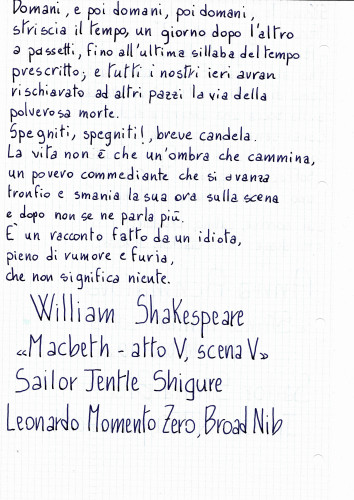 Domani, e poi domani, poi domani,
striscia il tempo, un giorno dopo l'altro
a passetti, fino all'ultima sillaba del tempo
prescritto; e tutti i nostri ieri avran
rischiarato ad altri pazzi la via della
polverosa morte.
Spegniti, spegniti!, breve candela.
La vita non è che un'ombra che cammina,
un povero commediante che si avanza
tronfio e smania la sua ora sulla scena
e dopo non se ne parla più.
E' un racconto fatto da un idiota,
pieno di rumore e furia,
che non significa niente.
William Shakespeare
«Macbeth - atto V, scena V»
Sailor Jentle Shigure
Leonardo Momento Zero, Broad Nib